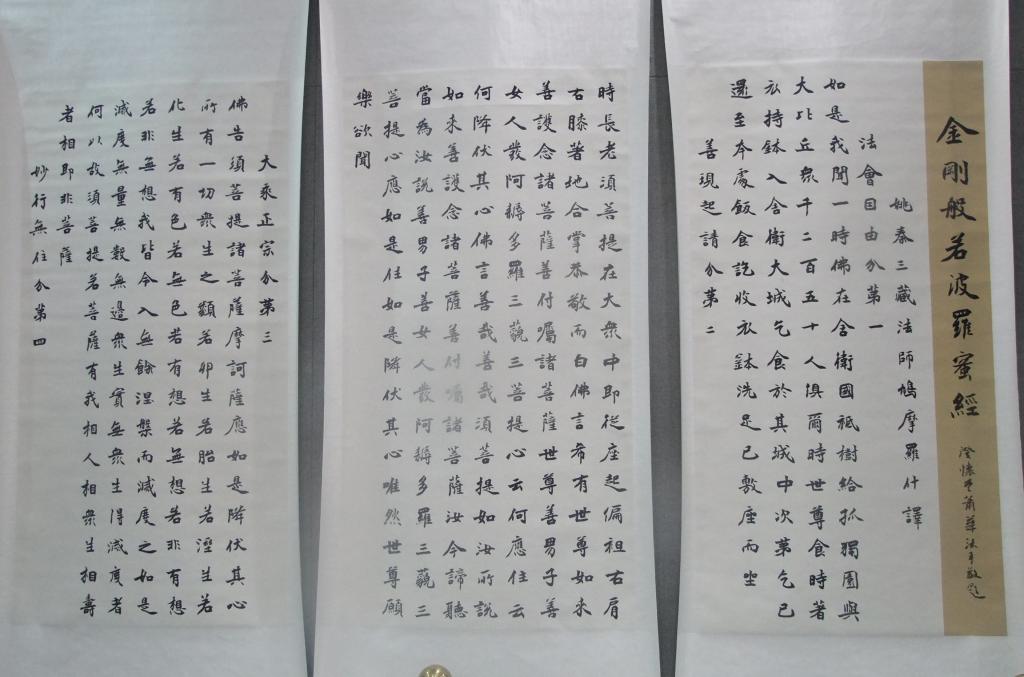 金剛般若波羅蜜經
姚秦三藏法師鳩摩羅什譯
法會因由分第一
如是我聞一時佛在舍衛國祇樹給孤獨園與
大比丘衆千二百五十人俱爾時世尊食時著
衣持鉢入舍衛大城乞食於其城中次第乞已
還至本處飯食訖收衣鉢洗足已敷座而坐
善現起請分第二
時長老須菩提在大衆中即從座起偏袒右肩
右膝著地合掌恭敬而白佛言希有世尊如來
善護念諸菩薩善付囑諸菩薩世尊善男子善
女人發阿耨多羅三藐三菩提心云何應住云
何降伏其心佛言善哉善哉須菩提如汝所說
如來善護念諸菩薩善付囑諸菩薩汝今諦聽
當為汝說善男子善女人發阿耨多羅三藐三
菩提心應如是住如是降伏其心唯然世尊願
樂欲聞
大乘正宗分第三
佛告須菩提諸菩薩摩訶薩應如是降伏其心
所有一切衆生之類若卵生若胎生若溼生若
化生若有色若無色若有想若無想若非有想
若非無想我皆令入無餘涅槃而滅度之如是
滅度無量無數無邊衆生實無衆生得滅度者
何以故須菩提若菩薩有我相人相衆生相壽
者相即非菩薩
妙行無住分第四